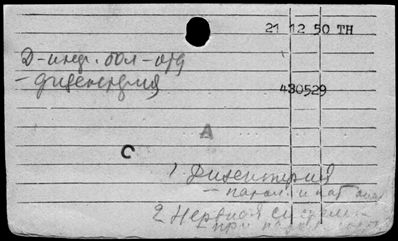 21 12 50 TH
Д-инф. бол-ота
- дизентерия
430529
A
C
1 Дизентерия
2 Нервная система
- при